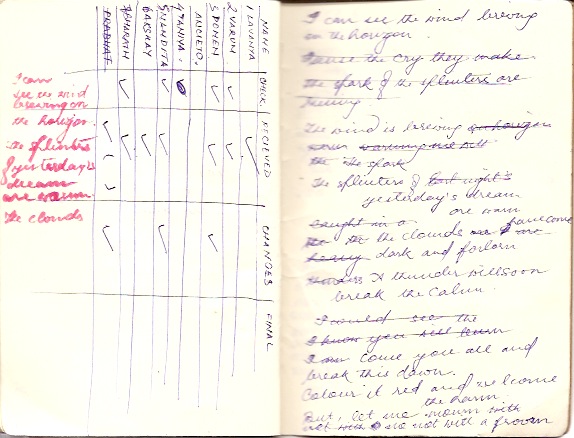 NAME CHECK RECIEVED CHANGES FINAL
1 LAVANYA
2 VARUN.
3 DOHEN
ANCIETO.
4 TANIYA.
5 NANDITA
6 AKSHAY
BHARATH
PRABHAT
I can
see the wind
brewing on
the horizon.
The splinters
of yesterday's
dream
are warm.
The clouds
I can see the wind brewing
on the horizon.
I hear the cry they make
the spark of the splinters are
The wind is brewing on horizon
the spark
The splinters of last night's
yesterday's dream
are warm
caught in a
the clouds are have come
heavy dark and forlorn
A thunder will soon
break the calm.
I would see the
I know you will
I am come you all and
break this dawn.
Colour it red and welcome
the harm.
But, let me mourn with
not with a frown